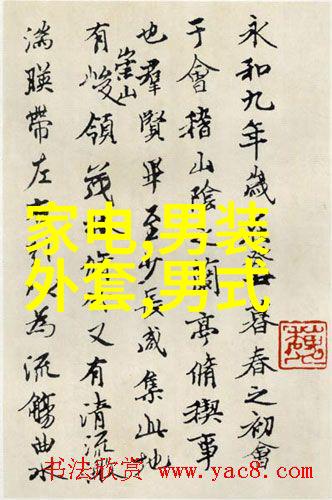 永和九年歲暮春之初會
于會稽山陰蘭亭脩禊事
也羣賢畢至少長咸集此地
有崇山峻領茂林又有清流激
湍暎帶左右以為流觴曲水
家电,男装
外套,男式
书法欣赏 www.yac8.com